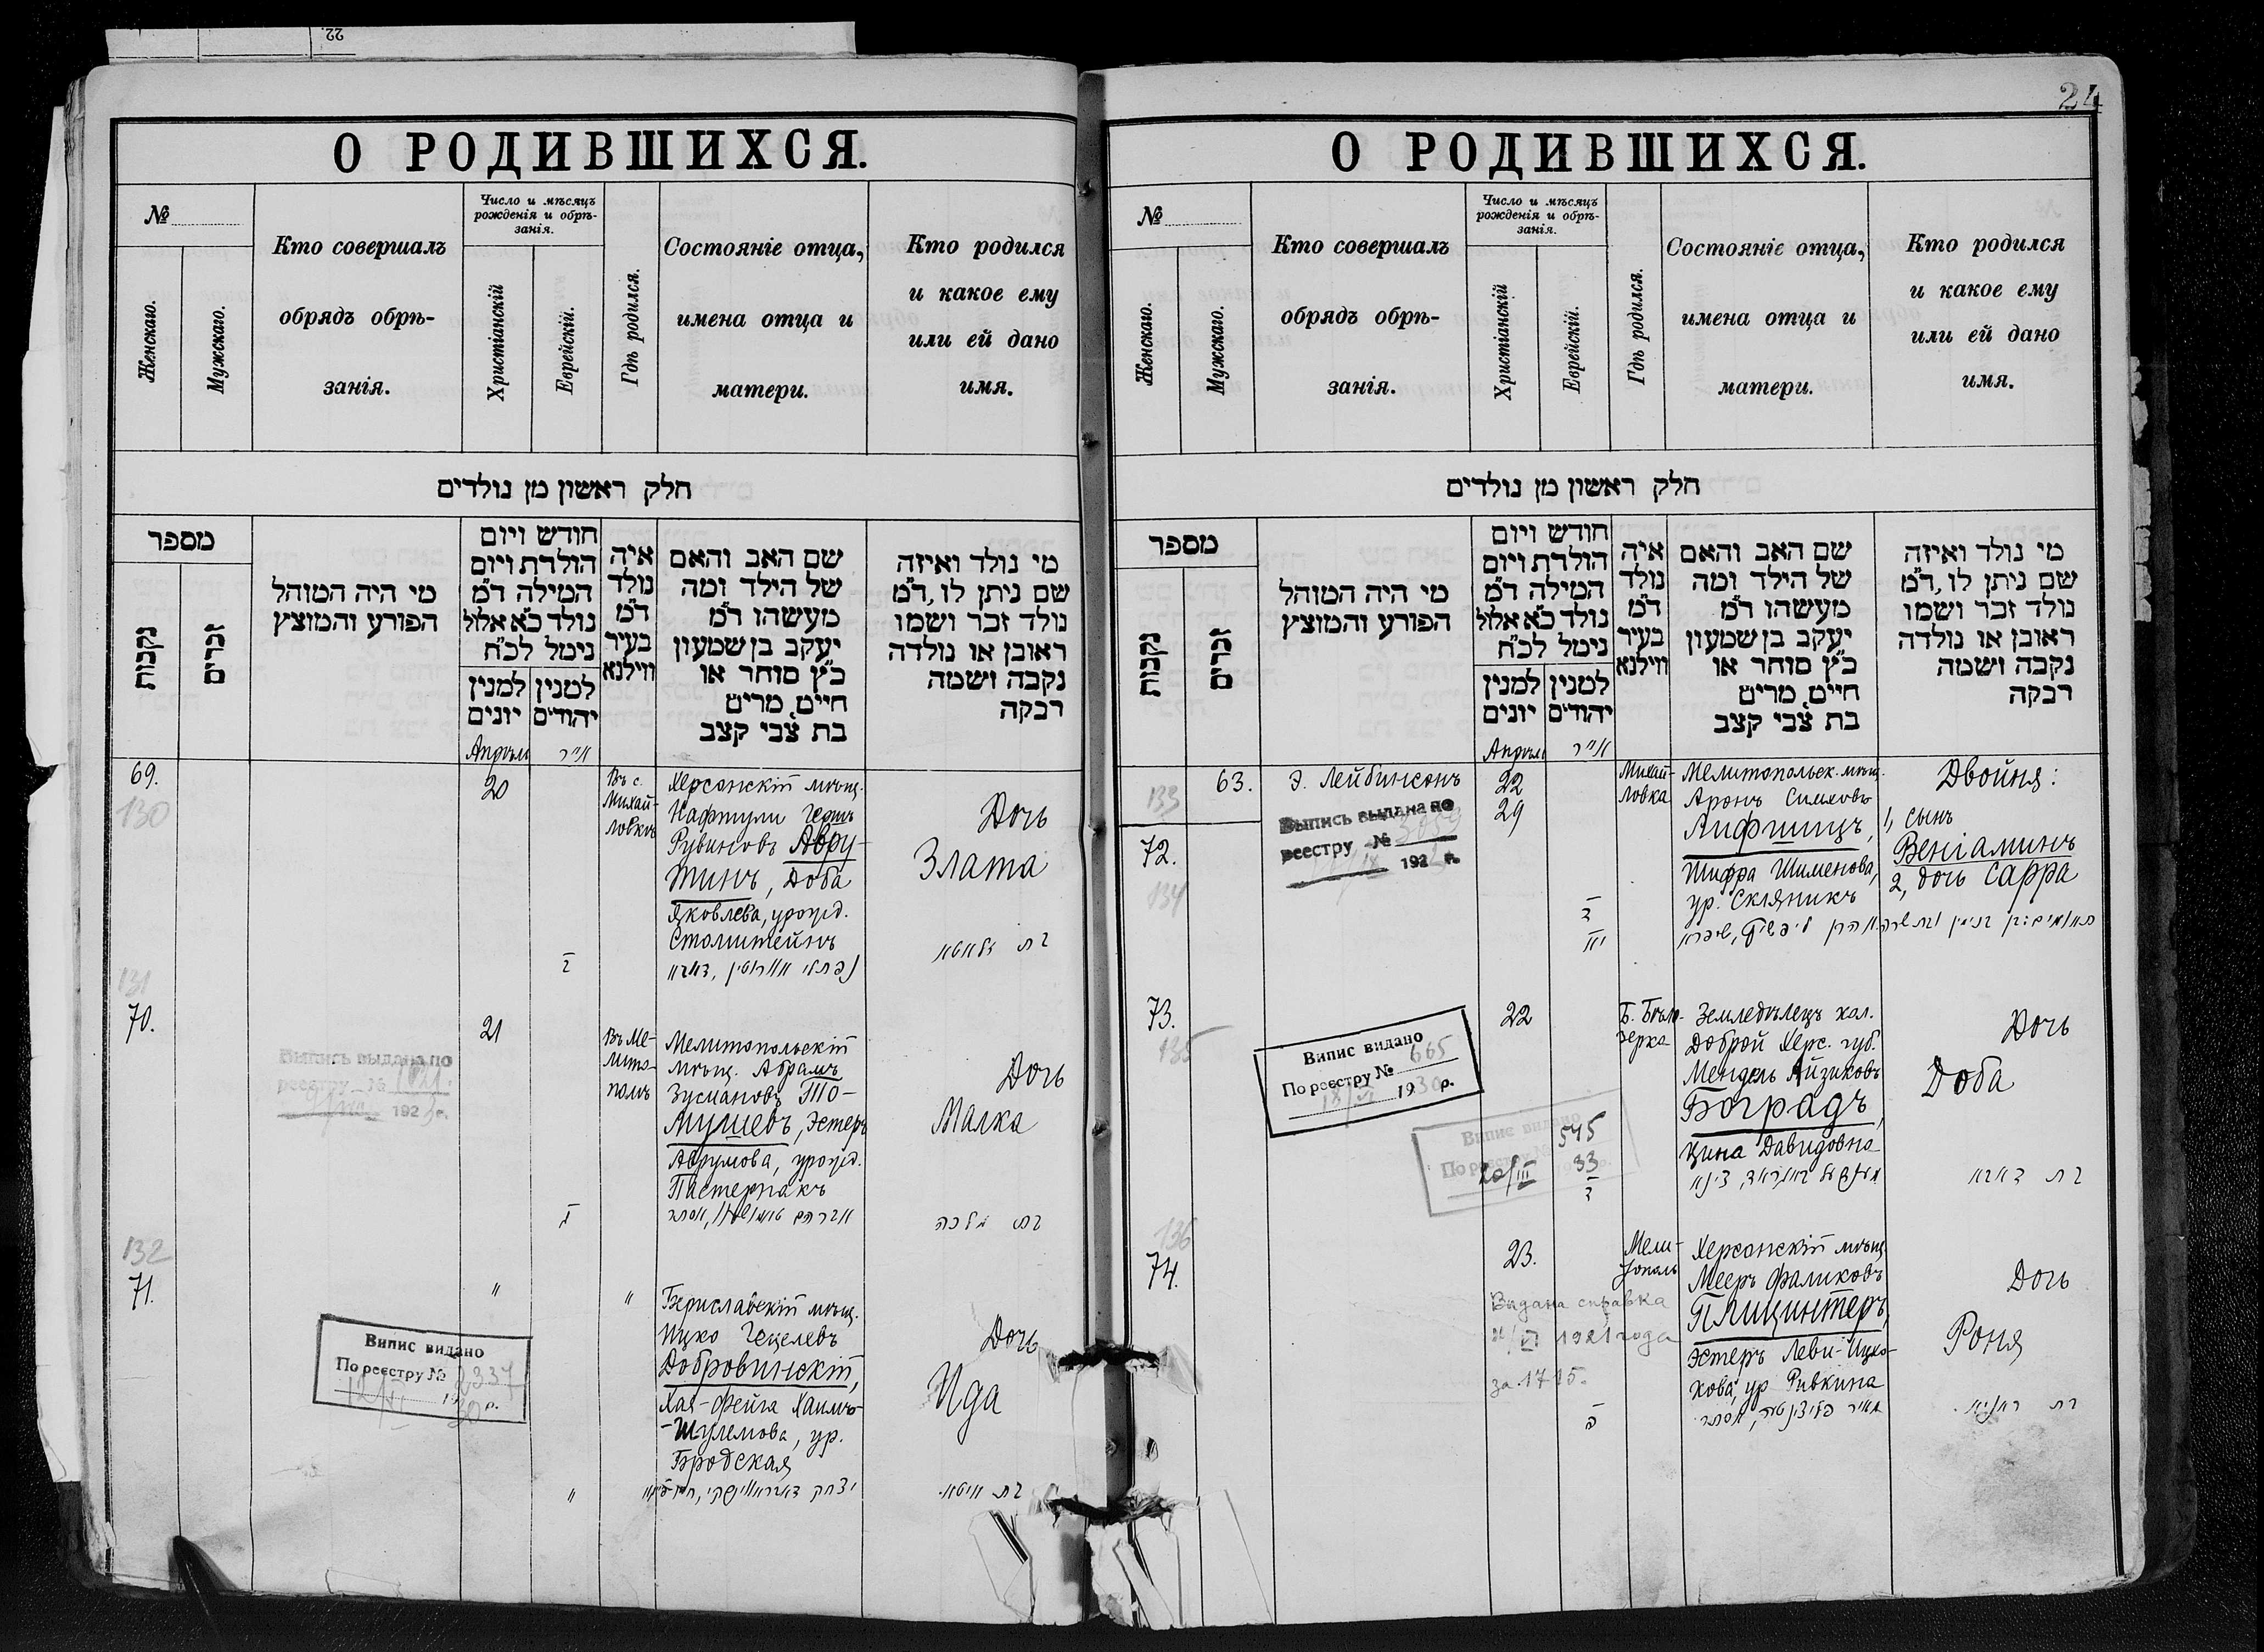 22.
О РОДИВШИХСЯ.
№
Женскаго.
Мужскаго.
Кто совершалъ
обрядъ обрѣ-
занія.
Число и мѣсяцъ
рожденія и обрѣ-
занія.
Христіанскій
Еврейскій.
Гдѣ родился.
Состояніе отца,
имена отца и
матери.
Кто родился
и какое ему
или ей дано
имя.
חלק ראשון מן נולדים
מספר
נקבות
זכרים
מי היה המוהל
הפורע והמוצץ
חודש ויום
הולדת ויום
המילה ד״מ
נולד כ״א אלול
נימל לכ״ח
למנין יונים
למנין יהודים
איה
נולד
ד״מ
בעיר
ווילנא
שם האב והאם
של הילד ומה
מעשהו ד״מ
יעקב בן שמעון
כ״ץ סוחר או
חייט, מרים
בת צבי קצב
מי נולד ואיזה
שם ניתן לו, ד״מ
נולד זכר ושמו
ראובן או נולדה
נקבה ושמה
רבקה
Апрѣль
אייר
69.
130
20
ב
Въ с.
Михай-
ловкѣ
Херсонскій мѣщ.
Нафтули Герш
Рувиновъ Авру-
тинъ, Доба
Яковлева, урожд.
Столитейнъ
נפתלי אוורוטין, דאבא
Дочь
Злата
בת זלאטא
131
70.
Выпись выдана по
реестру №
192 г.
21
ג
Въ Ме-
лито-
полѣ
Мелитопольскій
мѣщ. Абрамъ
Зусмановъ То-
мушевъ, Эстеръ
Аврумова, урожд.
Пастернакъ
Дочь
Малка
בת מלכה
132
71.
Випис видано
По реєстру № 2337
1930 р.
"
"
"
Бериславскій мѣщ.
Ицко Гецелевъ
Добровинскій,
Хая-Фейга Хаимъ-
-Шулемова, ур.
Бродская
Дочь
Ида
בת אידא
24
О РОДИВШИХСЯ.
№
Женскаго.
Мужскаго.
Кто совершалъ
обрядъ обрѣ-
занія.
Число и мѣсяцъ
рожденія и обрѣ-
занія.
Христіанскій
Еврейскій.
Гдѣ родился.
Состояніе отца,
имена отца и
матери.
Кто родился
и какое ему
или ей дано
имя.
חלק ראשון מן נולדים
מספר
נקבות
זכרים
מי היה המוהל
הפורע והמוצץ
חודש ויום
הולדת ויום
המילה ד״מ
נולד כ״א אלול
נימל לכ״ח
למנין יונים
למנין יהודים
איה
נולד
ד״מ
בעיר
ווילנא
שם האב והאם
של הילד ומה
מעשהו ד״מ
יעקב בן שמעון
כ״ץ סוחר או
חייט, מרים
בת צבי קצב
מי נולד ואיזה
שם ניתן לו, ד״מ
נולד זכר ושמו
ראובן או נולדה
נקבה ושמה
רבקה
Апрѣль
אייר
133
63.
72.
134
Э. Лейбинсонъ
Выпись выдана по
реестру № 3059
192 г.
22
29
ד
יא
Михай-
ловка
Мелитопольск. мѣщ.
Аронъ Симховъ
Лифшицъ,
Шифра Шименова,
ур. Скляникъ
אהרן ליפשיץ, שיפרא
Двойня:
1, сынъ
Веніаминъ
2, дочь Сарра
73.
135
Випис видано
По реєстру № 665
1930 р.
Випис видано
По реєстру №
545
33
20/III
22
ד
Б. Бѣло-
зерка
Земледѣлецъ кол.
Доброй Херс. губ.
Мендель Айзиковъ
Боградъ,
Цина Давидовна
מענדעל באגראד, צינא
Дочь
Доба
בת דאבא
136
74.
23.
ה
Выдана справка
1921 года
за 1715.
Мели-
тополь
Херсонскій мѣщ.
Мееръ Фаликовъ
Плицинтеръ,
Эстеръ Леви-Ицко-
кова, ур Ривкина
מאיר פליצינטער, אסתר
Дочь
Роня
בת ראניא